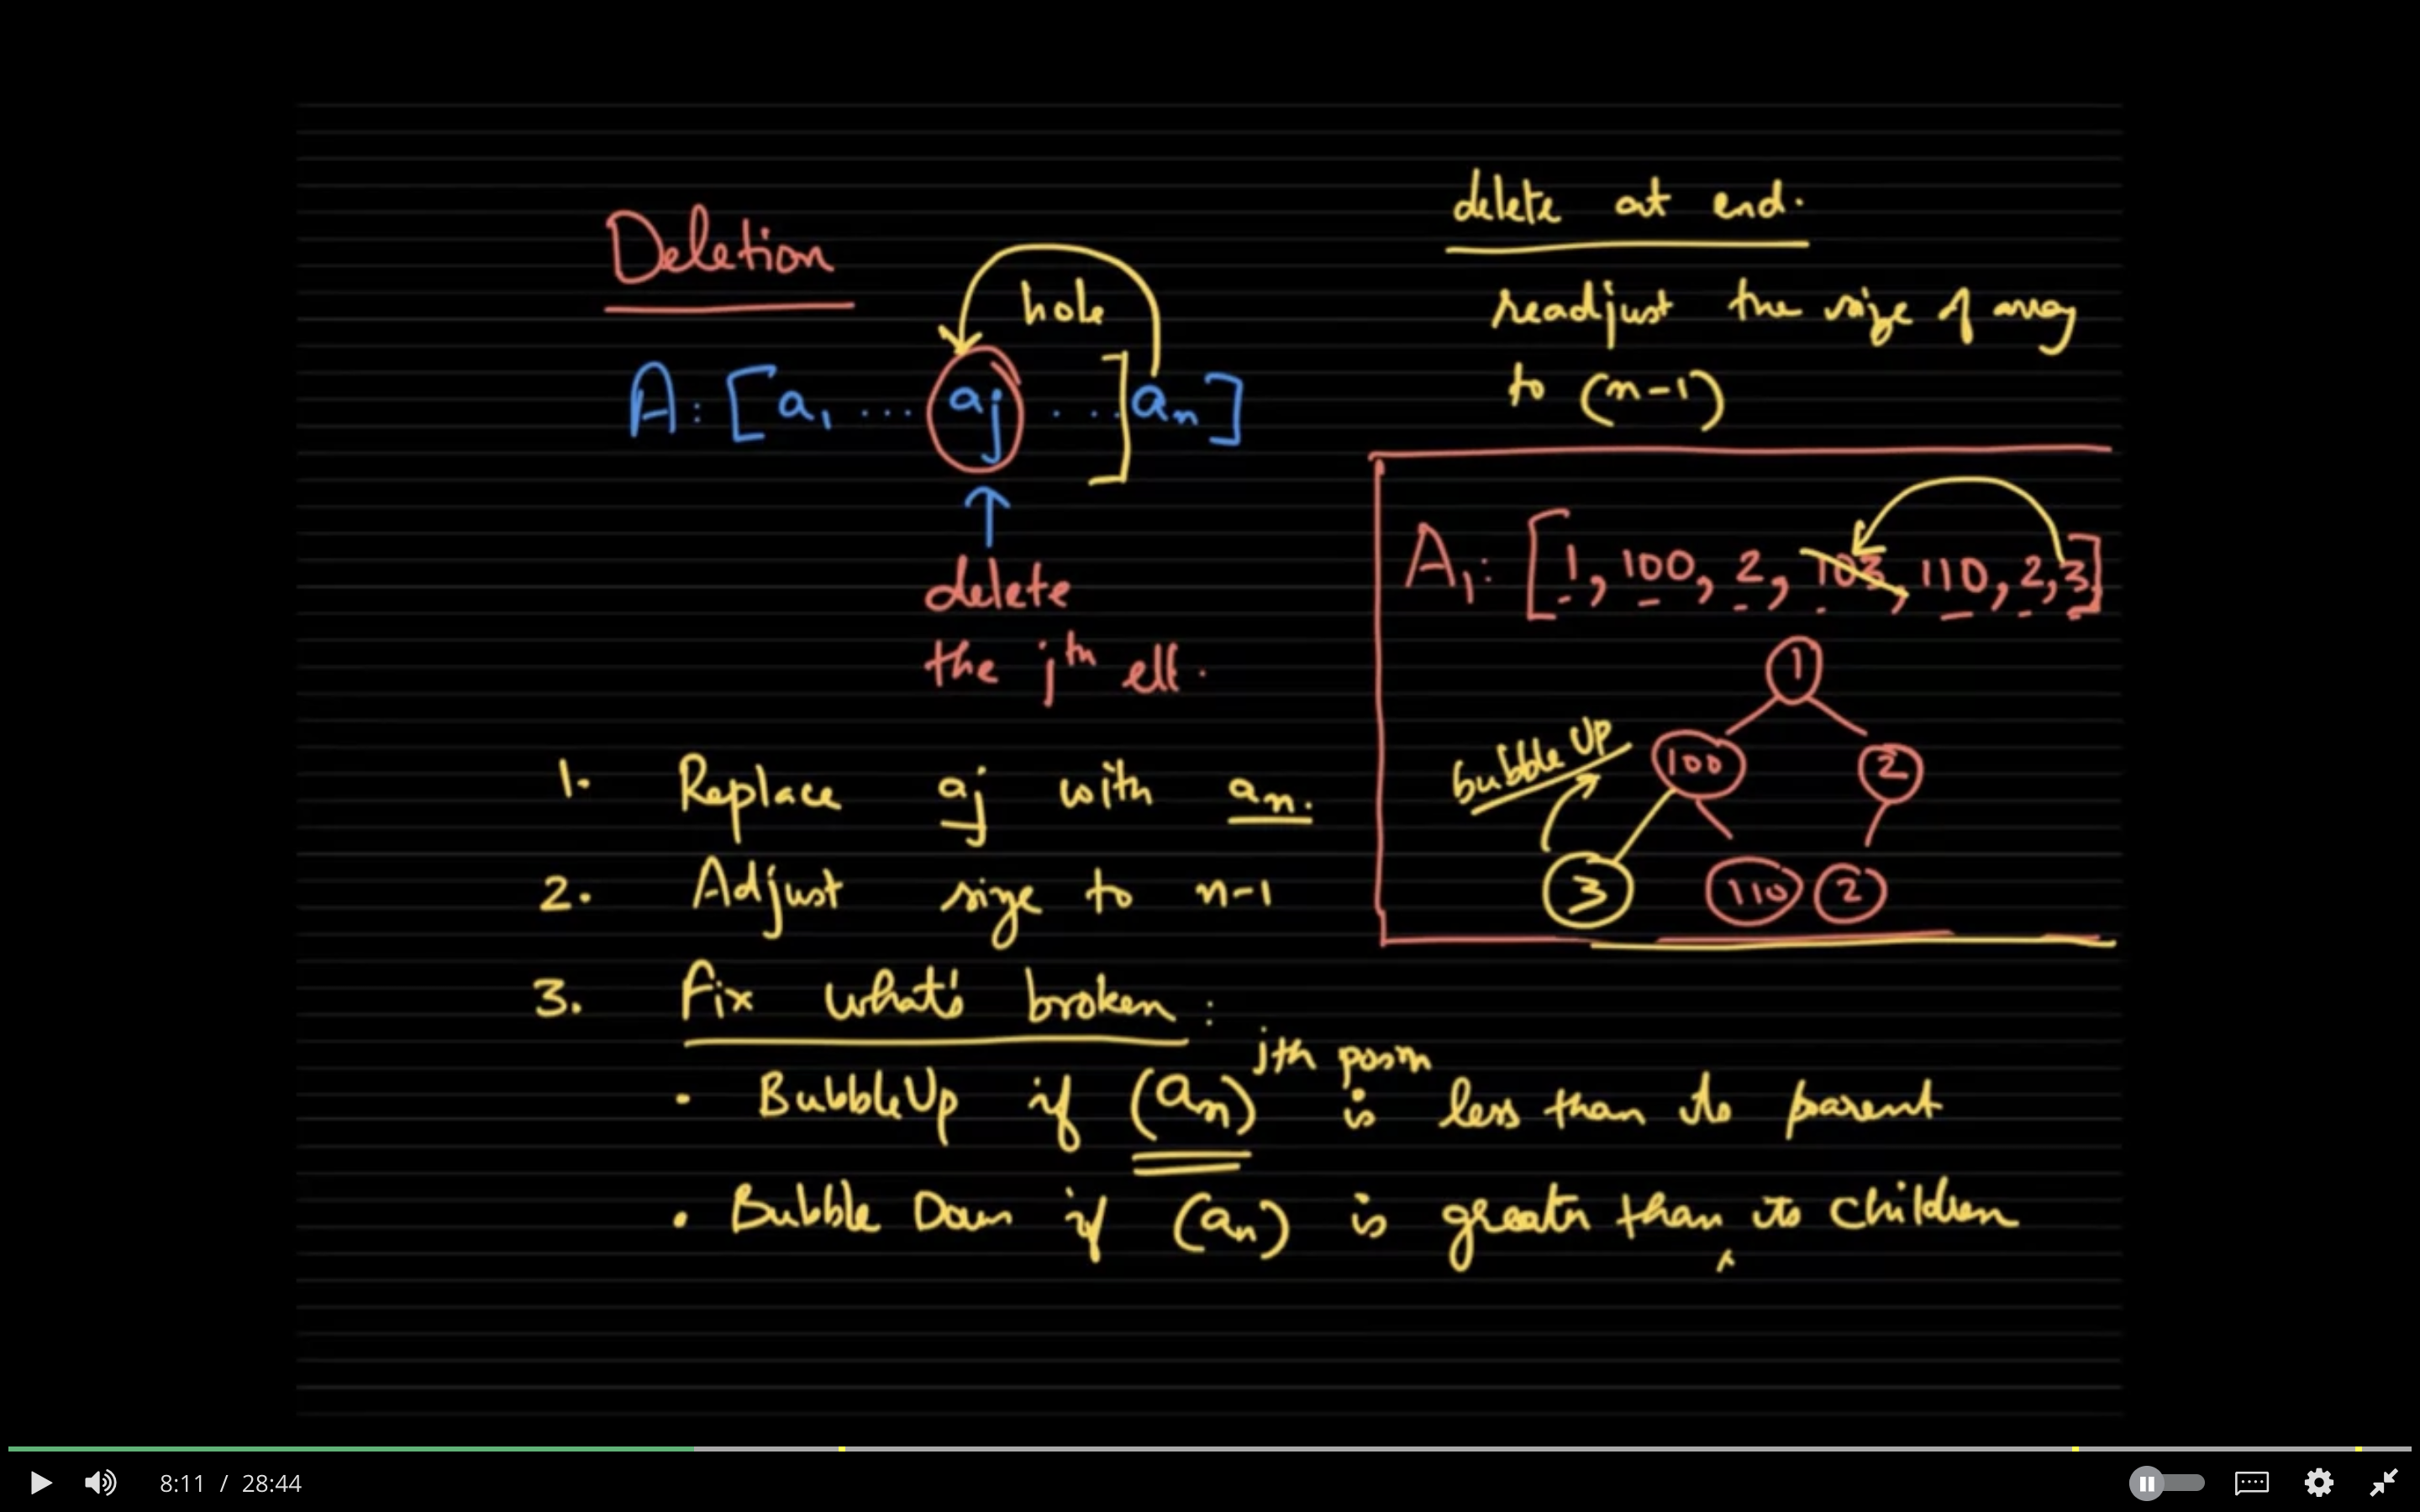 Deletion
hole
A: [a1 ... aj ... ] an]
delete
the jth ell.
delete at end.
readjust the size of array
to (n-1)
A1: [1, 100, 2, 103, 110, 2, 3]
1
bubble Up
100
2
3
110
2
1. Replace aj with an.
2. Adjust size to n-1
3. Fix what's broken:
jth posn
• BubbleUp if (an) is less than its parent
• Bubble Down if (an) is greater than its children
8:11 / 28:44